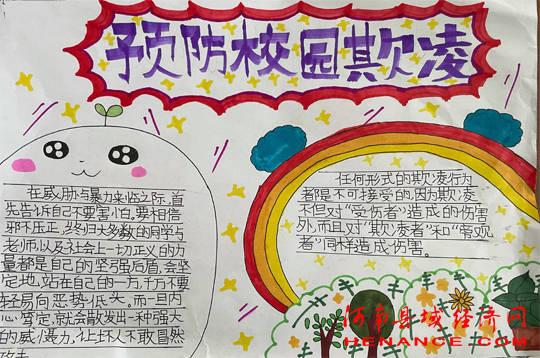 预防校园欺凌
在威胁与暴力来临之际,首
先告诉自己不要害怕。要相信
邪不压正,终归大多数的同学与
老师,以及社会上一切正义的力
量都是自己的坚强后盾,会坚
定地站在自己的一方,千万不要
轻易向恶势低头。而一旦内
心笃定,就会散发出一种强大
的威慑力,让坏人不敢冒然
攻击
任何形式的欺凌行为
都是不可接受的,因为欺凌
不但对“受伤者”造成的伤害
外,而且对“欺凌者”和“旁观
者”同样造成伤害。
河南县域经济网
HENANCE.COM